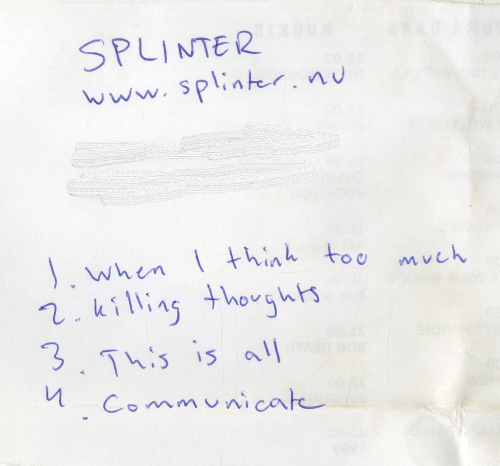 SPLINTER
www.splinter.nu
1. When I think too much
2. killing thoughts
3. This is all
4. Communicate